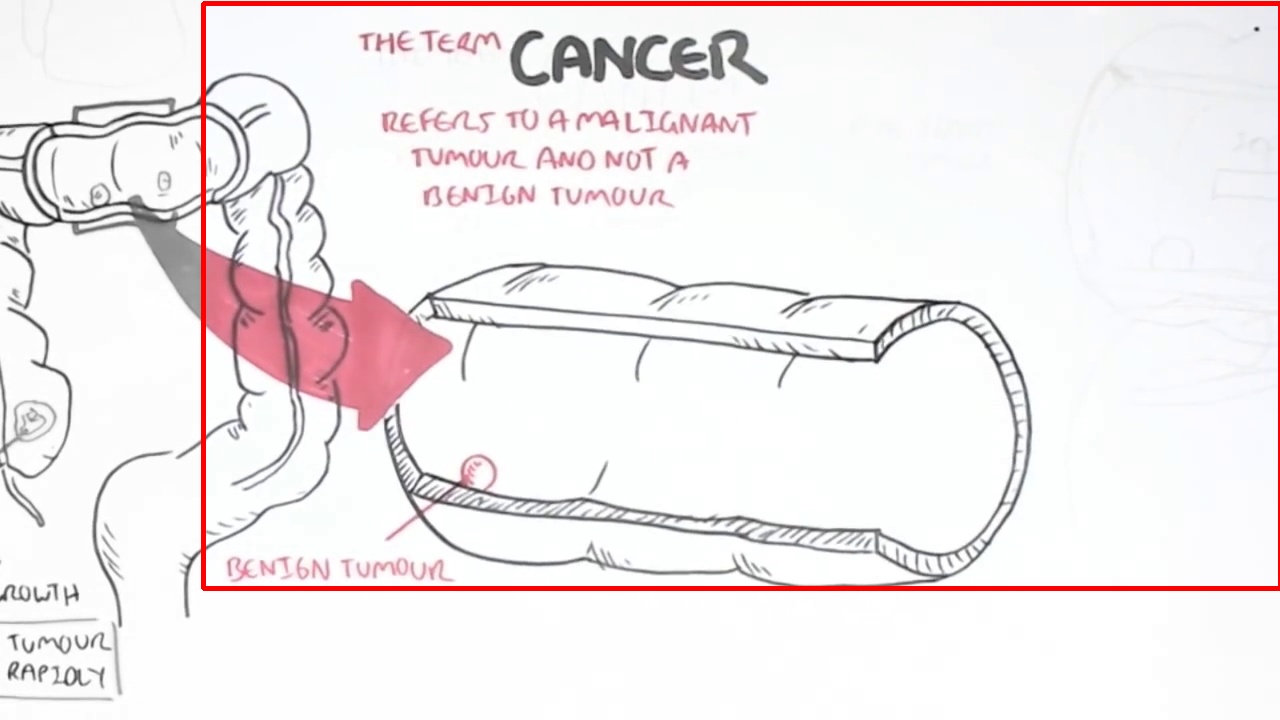 THE TERM CANCER
REFERS TO A MALIGNANT
TUMOUR AND NOT A
BENIGN TUMOUR
BENIGN TUMOUR
ROWTH
TUMOUR
RAPIDLY